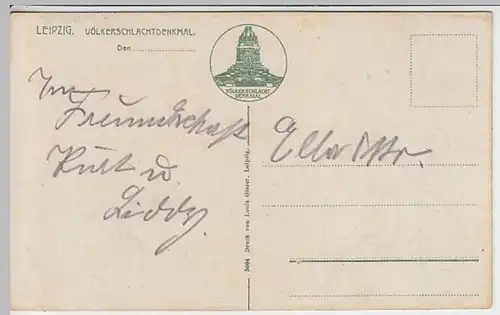 LEIPZIG. VÖLKERSCHLACHTDENKMAL.
Den
VÖLKERSCHLACHT
DENKMAL
In
Freundschaft
Kurt u.
Liddy.
Ella
5064 Druck von Louis Glaser, Leipzig.